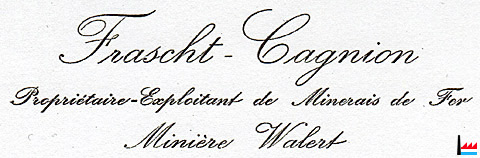 Frascht-Cagnion
Propriétaire-Exploitant de Minerais de Fer
Minière Walert